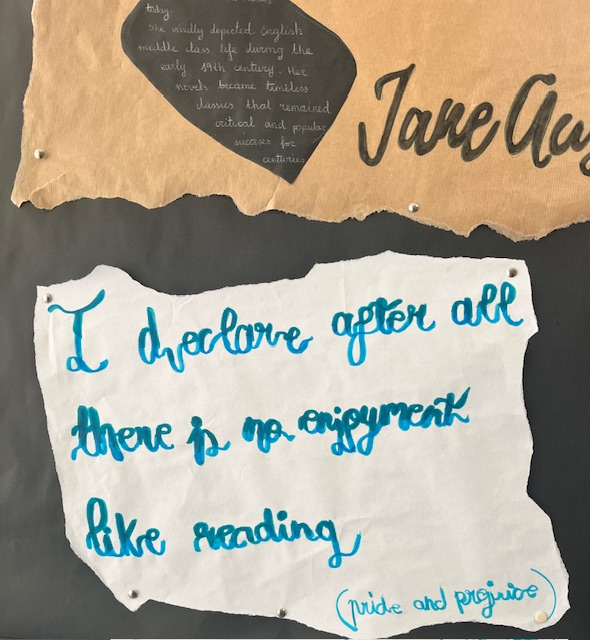 today.
She vividly depicted English
middle class life during the
early 19th century. Her
novels became timeless
classics that remained
critical and popular
success for
centuries
Jane Aus
I declare after all
there is no enjoyment
like reading
(pride and prejuice)